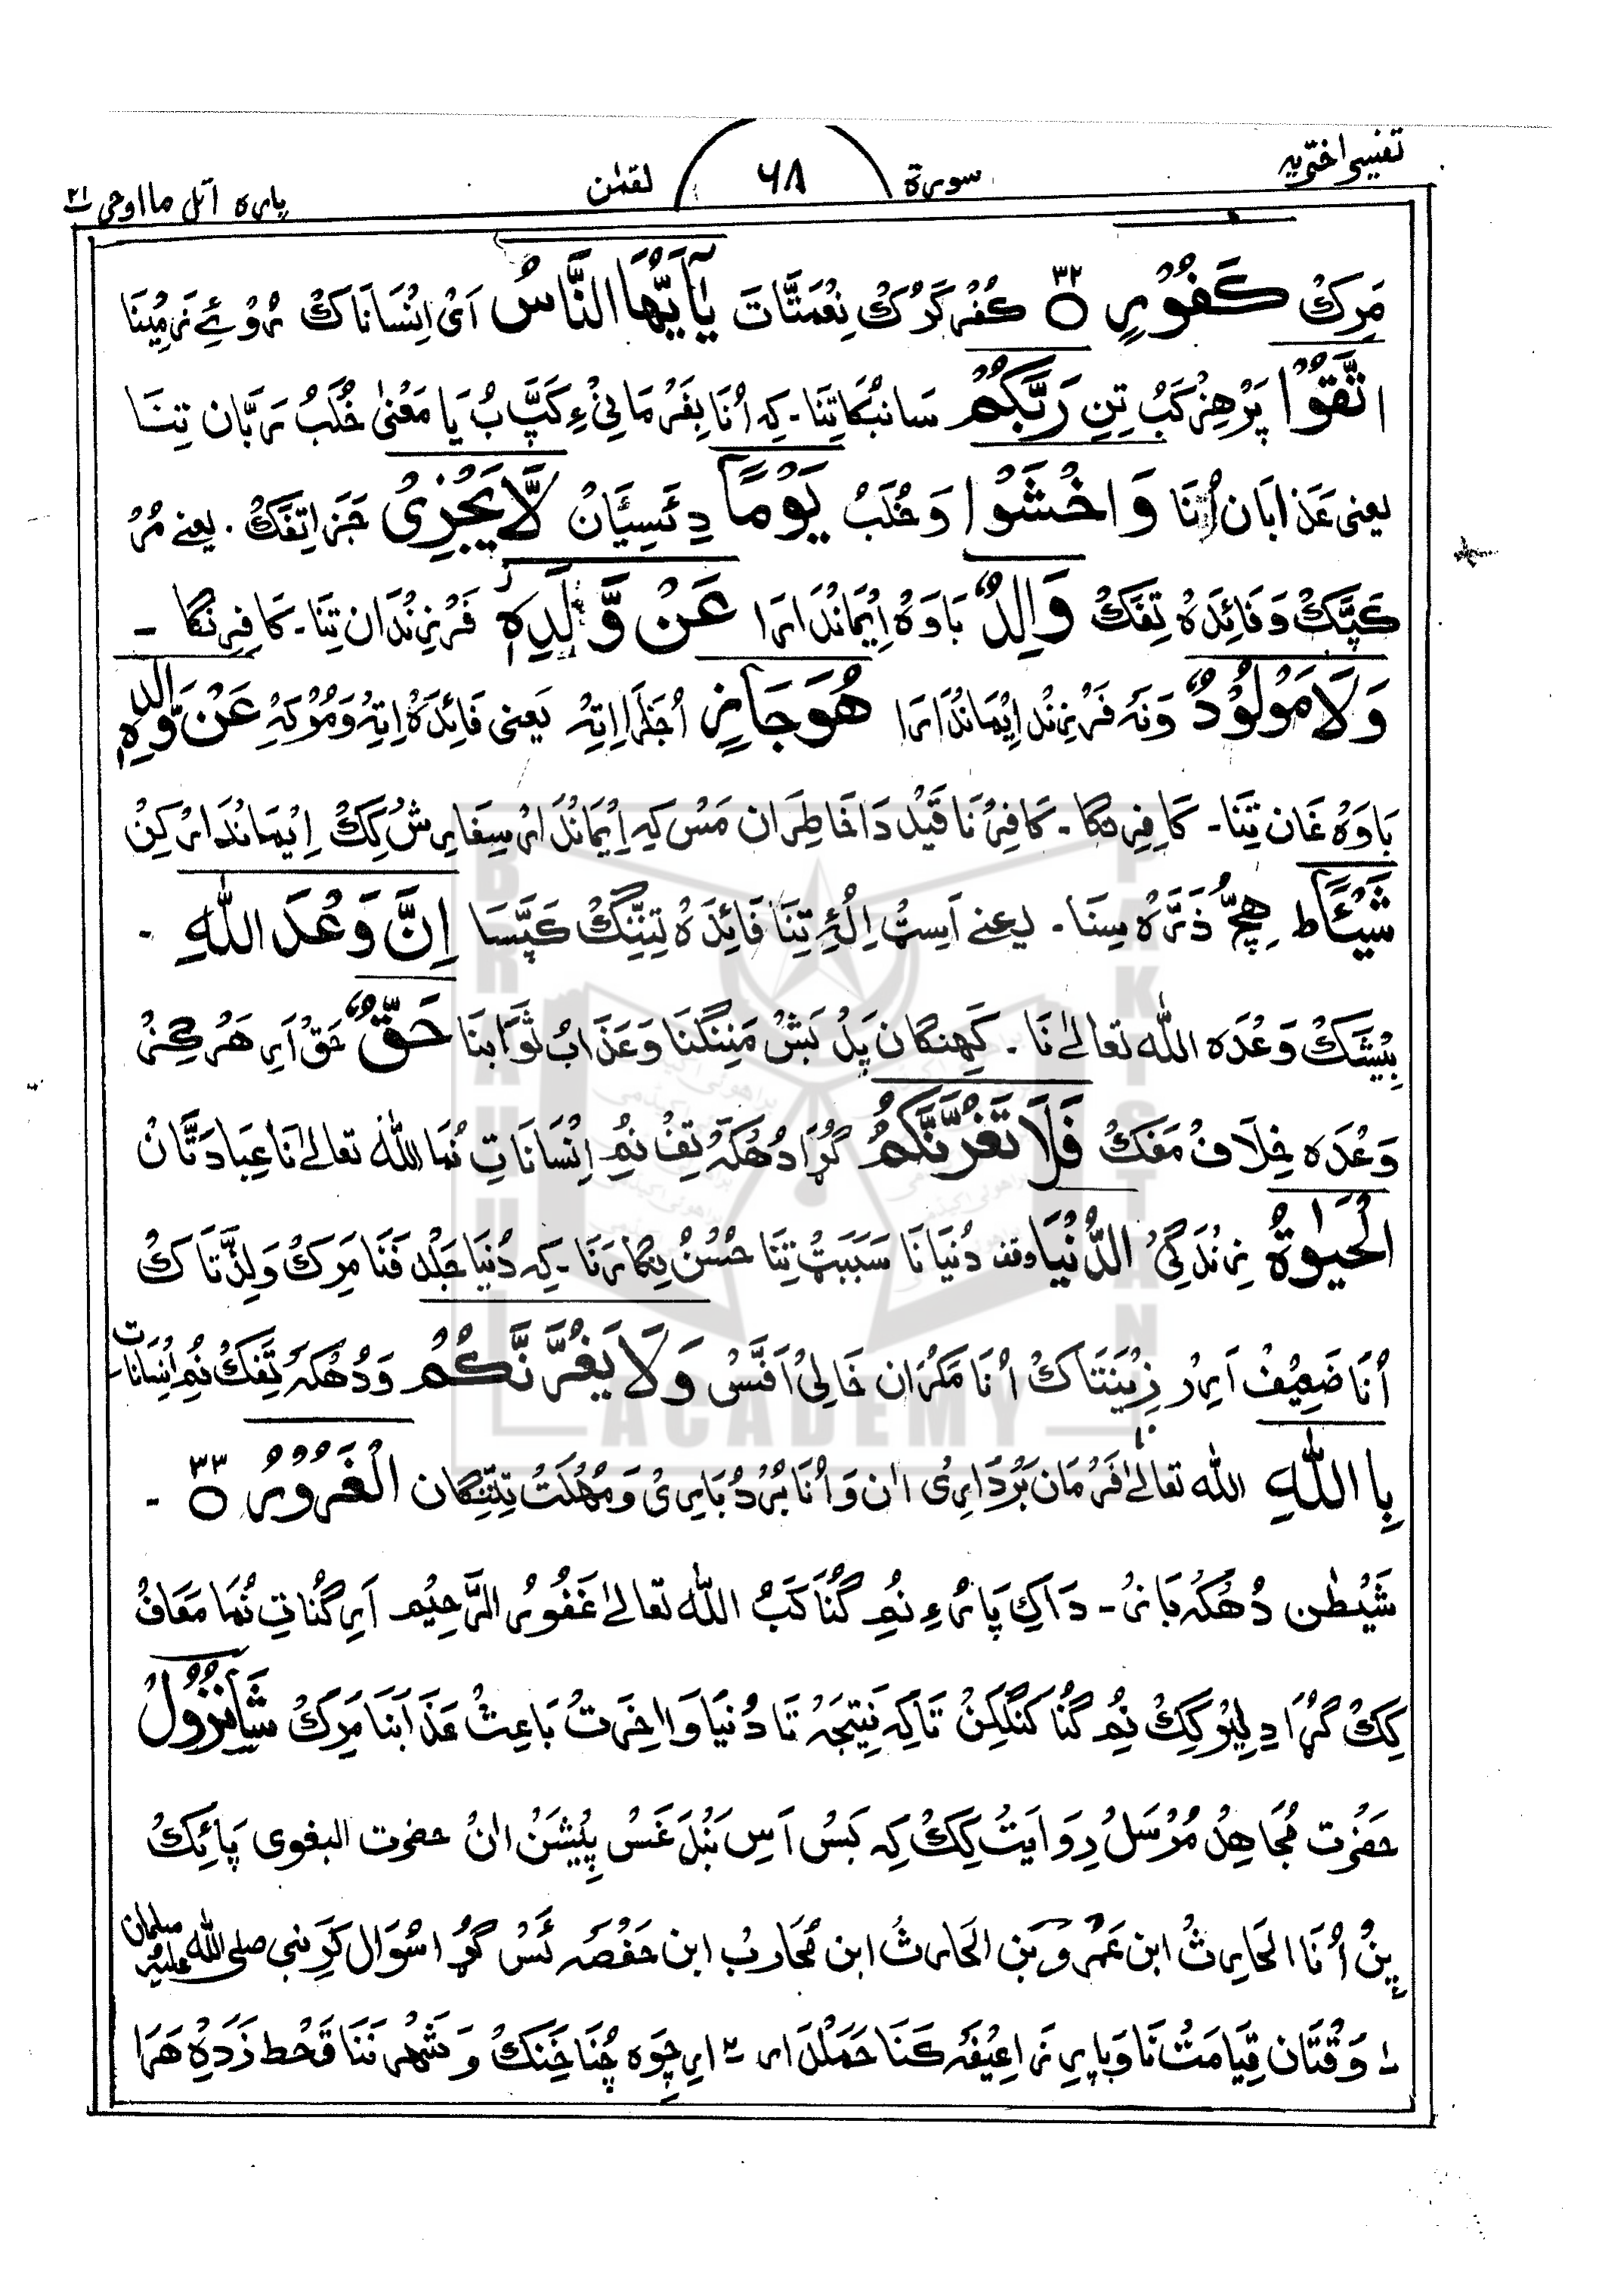 تفسیر اختریہ
سورۃ ۶۸ لقمٰن
پارہ اتل ما اوحی ۲۱
مَرِکْ کَفُوْرٍ ۝۳۲ کُفْر کَرُکْ نِعْمَتَّاتَ یٰۤاَیُّهَا النَّاسُ اَیْ اِنْسَانَاکْ رُوْئے زَمِیْنَا
اتَّقُوْا پَرْهِزْ کَبْ تِنِ رَبَّکُمْ سَانْبُکَا تِنَا۔ کِہ اُنَا بِفَرْمَانِیْ ءِ کَپَّ بُ یَا مَعْنیٰ خُلَبُ رَبَّان تِنَا
یعنی عَذَابَان اُنَا وَاخْشَوْا وَخُلَبُ یَوْمًا دِئَسِیَّانْ لَّا یَجْزِیْ جَزَا تِفَکْ ۔ یعنے مُرْ
کَپَّکْ وَفَائِدَہْ تِفَکْ وَالِدٌ بَاوَہْ اِیْمَانْدَارَا عَنْ وَّلَدِهٖ فَرْزِنْدَان تِنَا۔ کَافِرِنْگَا ۔
وَلَا مَوْلُوْدٌ وَنَہ فَرْزِنْد اِیْمَانْدَارَا هُوَ جَازٍ اُجَزَا اِتِہْ یعنی فَائِدَہْ اِتِہْ وَمُوْکِہْ عَنْ وَّالِدِهٖ
بَاوَہْ غَان تِنَا۔ کَافِرِنگَا۔ کَافِرْنَا قَیْدْ دَاخَاطِرَان مَسْ کِہ اِیْمَانْدَارْ سِفَارِشْ کِکْ اِیْمَانْدَارْ کِنْ
شَیْـًٔاط هِچّ ذَرَّہْ سِنَا۔ یعنے اَسِٹ اِلُئِ تِنَا فَائِدَہْ تِنِّنْگْ کَپَّسَا اِنَّ وَعْدَ اللّٰهِ ۔
بِیْشَکْ وَعْدَہ اللّٰہ تعالیٰ نَا۔ کَهِنگان پَدْ بَشْ مَنِنگْنَا وَعَذَابْ ثَوَابْنَا حَقٌّ حَقْ اَرِ هَرْگِزْ
وَعْدَہ خِلَافْ مَفَکْ فَلَا تَغُرَّنَّکُمُ گُڑَا دُهْکَہ تِفْ نُمِ اِنْسَانَاتِ نُمَا اللّٰہ تعالیٰ نَا عِبَادَتَّانْ
الْحَیٰوۃُ زِنْدَگِیْ الدُّنْیَا وقفہ دُنْیَانَا سَبَبَٹْ تِنَا حُسْنُ کِمَارَنَا۔ کِہ دُنْیَا جَلْد فَنَا مَرِکْ وَلِذَّتَاکْ
اُنَا ضَعِیْفْ اَرِرْ زِیْنَتَاکْ اُنَا مَکْرَان خَالِیْ اَفَّسْ وَلَا یَغُرَّنَّکُمْ وَدُهْکَہ تِفَکْ نُمِ اِنْسَانَاتِ
بِاللّٰهِ اللّٰہ تعالیٰ فَرْمَان بَرْدَارِیْ اٰن وَاُنَا بُرْدُبَارِیْ وَمُهْلَتْ تِنِّنگان الْغَرُوْرُ ۝۳۳ ۔
شَیْطٰن دُهْکَہ بَازْ۔ دَاکِ پَارْءِ نُمِ گُنَا کَبْ اللّٰہ تعالیٰ غَفُوْرُ الرَّحِیْم اَرِ گُنَاتِ نُمَا مَعَافْ
کِکْ گُڑَا دِلِیْرکِکْ نُمِ گُنَا کَنَنْگکِنْ تَاکِہ نَتِیْجَہْ تَا دُنْیَا وَاٰخِرَتْ بَاعِثْ عَذَابْنَا مَرِکْ شَانِ نُزُوْلْ
حَضْرت مُجَاهِدْ مُرْسَلْ رِوَایَتْ کِکْ کِہ بَسْ اَسِ بَنْدَغَسْ پِیْشَنْ اٰنْ حضرت البغوی پَائِکْ
پِنْ اُنَا الحَارِثْ ابن عَمْرو بَنِ الحَارِثْ ابن مُحَارِبْ ابن حَفْصَہ ئَسْ گُڑَا سُوَال کَرِ نبی صلی اللّٰہ علیہ وسلمان
۱؎ وَقْتَان قِیَامَتْ نَا وَپارِ زَاعِیْفَہ کَنَا حَمَلَدَارِ ۲؎ ارِ چِوَہ چُنَا خَنِکْ وَشَهْر نَنَا قَحْط زَدَہِ هَرَا